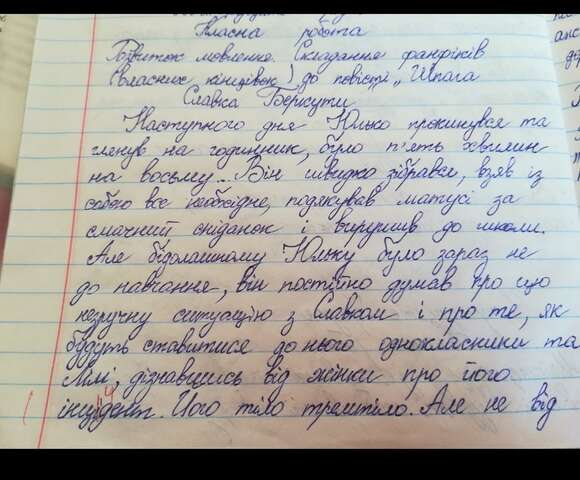 Класна робота
Розвиток мовлення. Складання фанфіків
(власних кінцівок) до повісті „Шпага
Славка Беркути"
Наступного дня Юлько прокинувся та
глянув на годинник, було п'ять хвилин
на восьму... Він швидко зібрався, взяв із
собою все необхідне, подякував матусі за
смачний сніданок і вирушив до школи.
Але бідолашному Юльку було зараз не
до навчання, він постійно думав про цю
незручну ситуацію з Славком і про те, як
будуть ставитися до нього однокласники та
Лілі, дізнавшись від жінки про його
інцидент. Його тіло тремтіло. Але не від